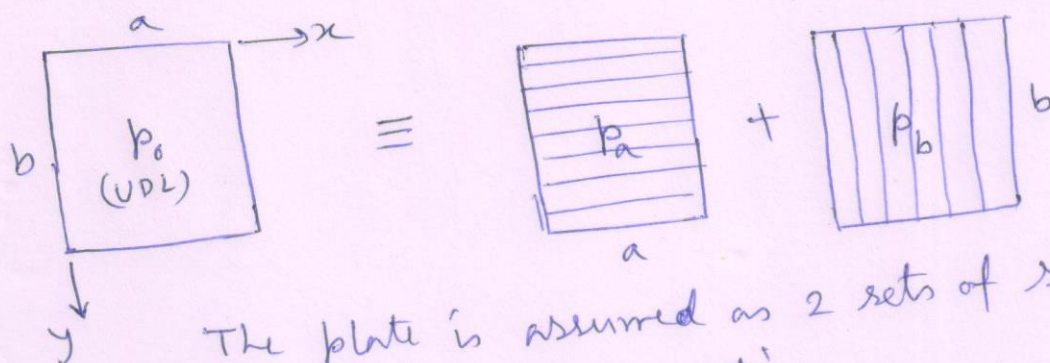 a
x
b
p₀
(UDL)
y
≡
pₐ
a
+
p_b
b
The plate is assumed as 2 sets of